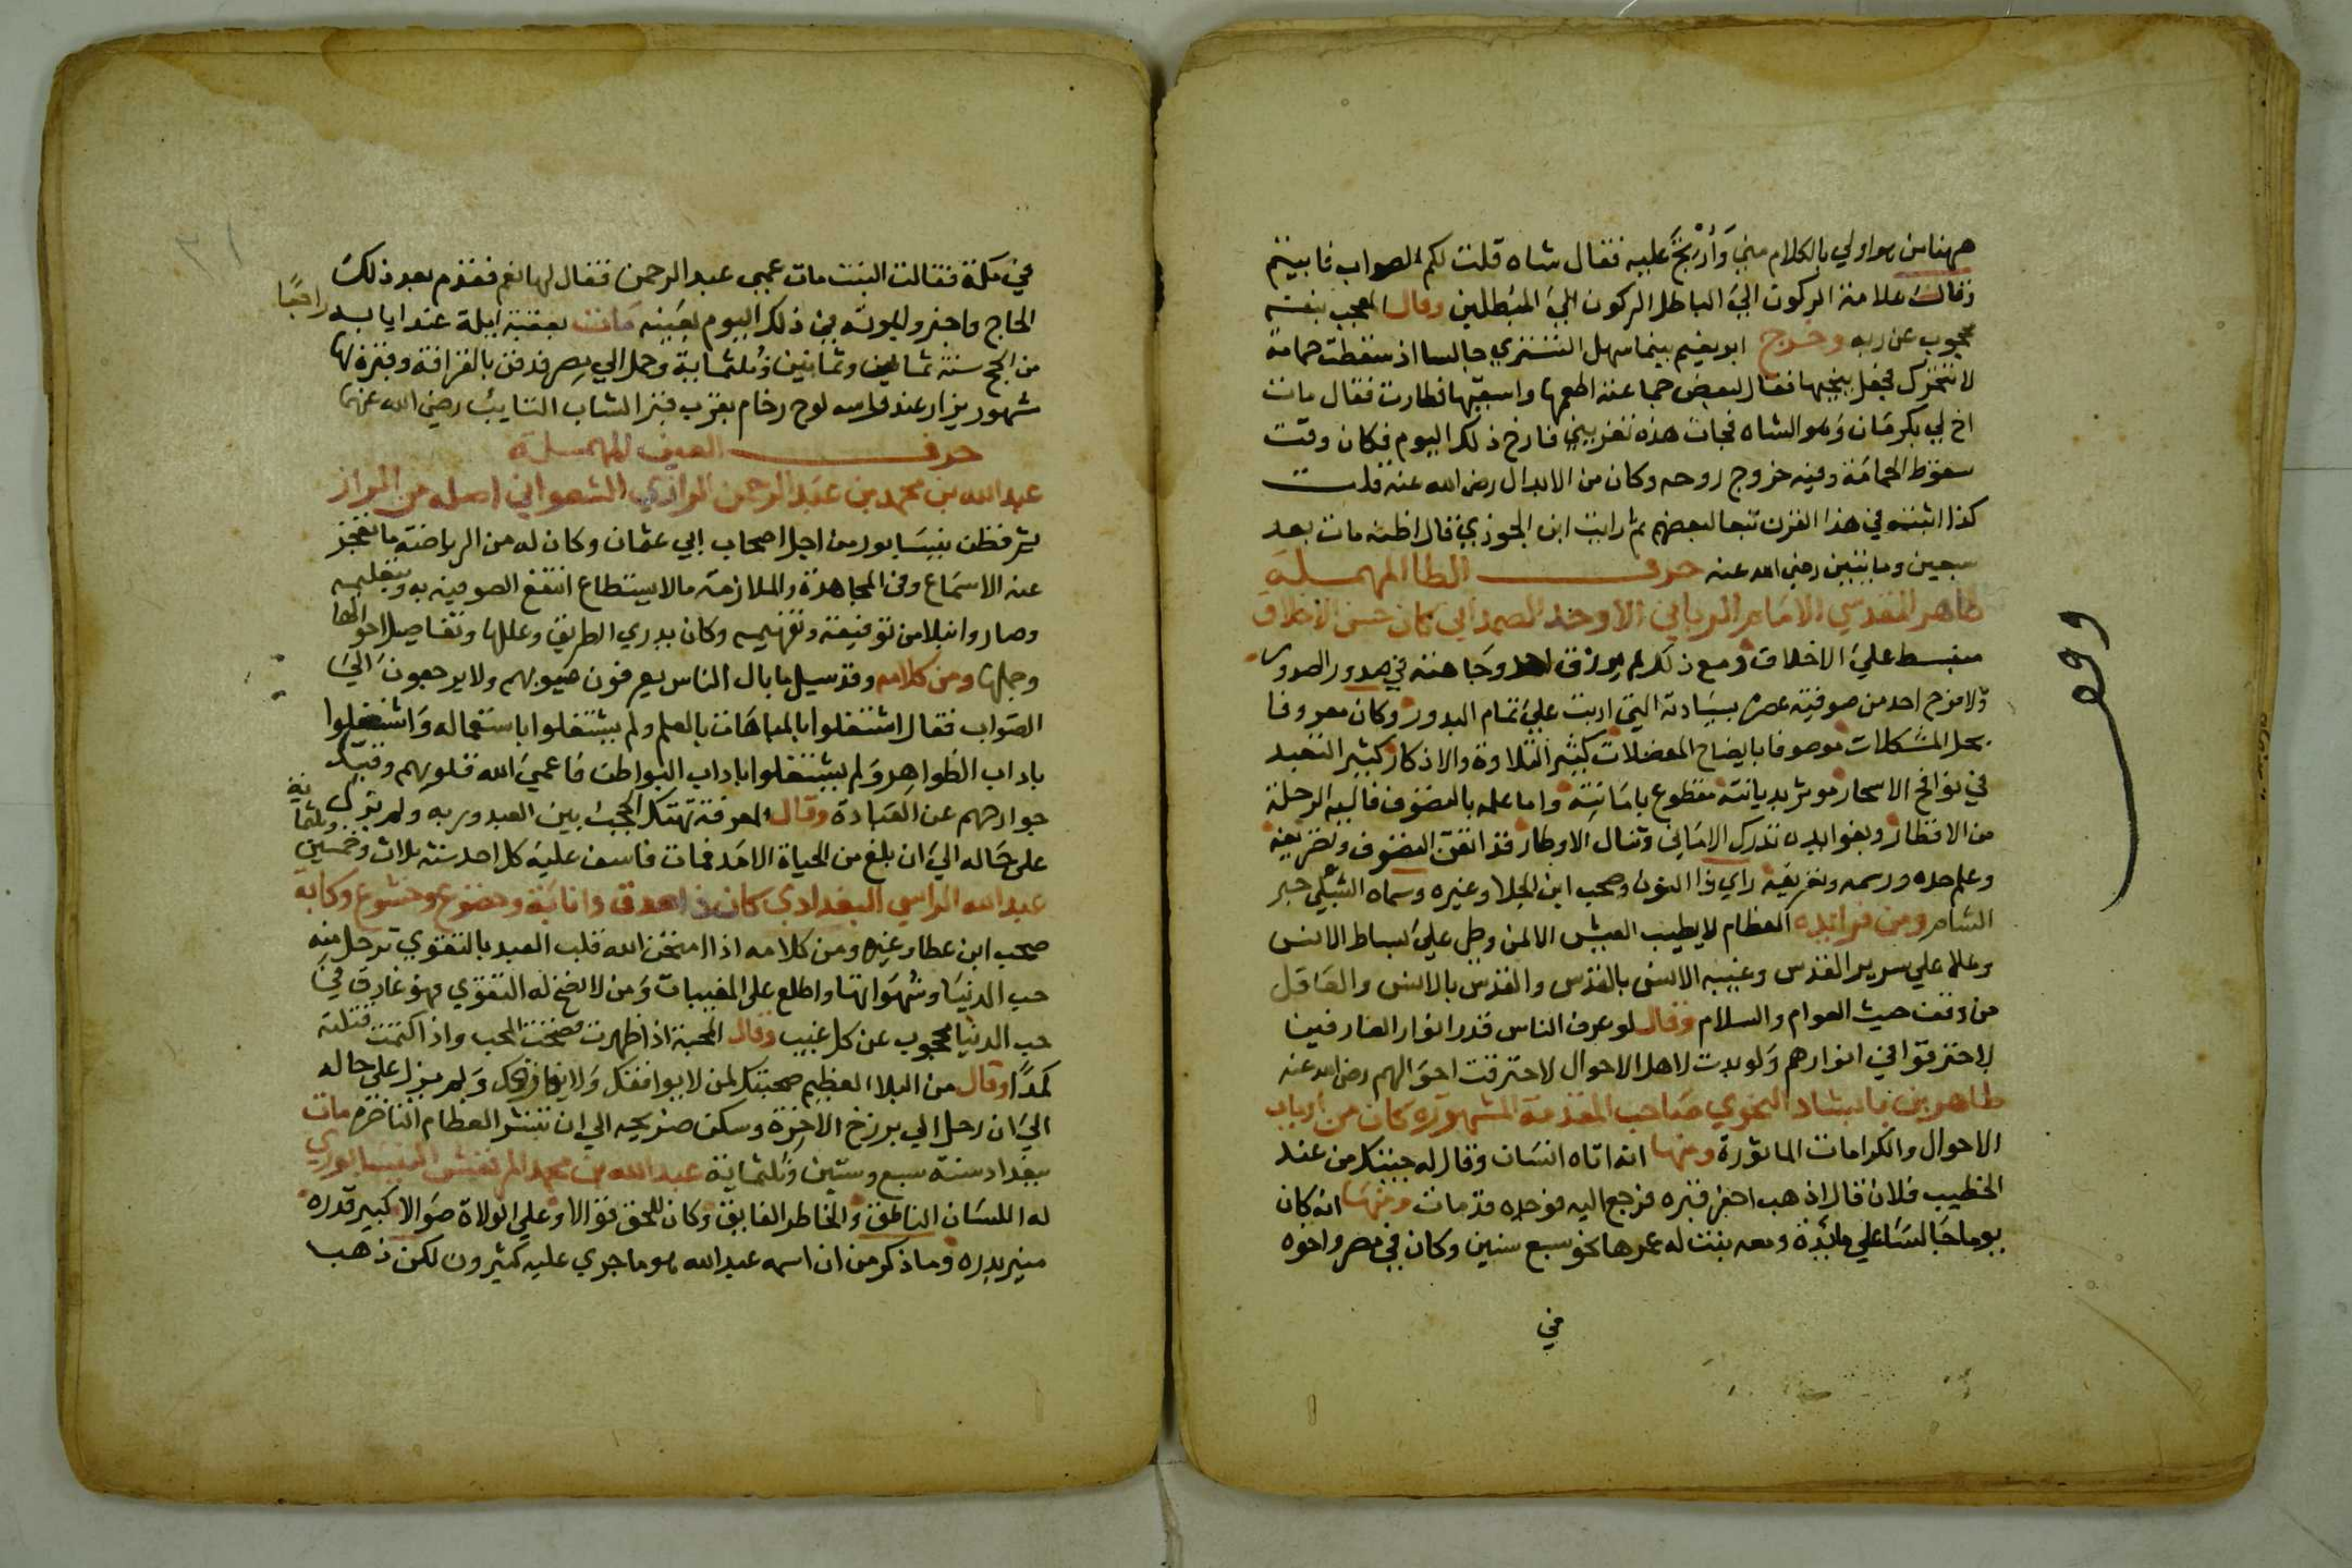 ههنا من هو اولي بالكلام مني وَأُرْتِجَ عليه فقال شاه قلت لكم الصواب فابيتم
وقال علامة الركون الي الباطل الركون الي المبطلين وقال المعجب بنفسه
محجوب عن ربه وخرج ابو نعيم بينما سهل التستري جالسا اذ سقطت حمامة
لا تتحرك فجعل ينحيها فقال لبعض جماعته اطعمها واسقيها فطارت فقال مات
اخ لي بكرمان وهو الشاه فجات هذه تعزيني فارخ ذلك اليوم فكان وقت
سقوط الحمامة وفيه خروج روحه وكان من الابدال رضي الله عنه قلت
كذا اثبته في هذا القرن تبعا لبعضهم ثم رايت ابن الجوزي قال اظنه مات بعد
سبعين ومايتين رضي الله عنه حرف الطا المهملة
طاهر المقدسي الامام الرباني الاوحد الصمداني كان حسن الاخلاق
منبسط علي الاخلاق ومع ذلك لم يرزق احد وجاهته في صدور الصدور
ولا مزج احد من صوفية عصره بسيادته التي اربت علي تمام البدور وكان معروفا
بحل المشكلات موصوفا بايضاح المعضلات كثير التلاوة والاذكار كثير التعبد
في نوافح الاسحار موثر بديانته مقطوع بامانته واما علمه بالتصوف فاليه الرحلة
من الاقطار وبفوايده تدرك الاماني وتنال الاوطار قد اتقن التصوف وتصريفه
وعلم حده ورسمه وتعريفه راي ذا النون وصحب ابن الجلا وغيره وسماه الشبلي حبر
الشام ومن فرائده العظام لا يطيب العيش الا لمن وطي علي بساط الانس
وعلا علي سرير القدس وغيبه الانس بالقدس والقدس بالانس والعاقل
من وقف حيث العوام والسلام وقال لو عرف الناس قدر انوار العارفين
لاحترقوا في انوارهم ولو بدت لاهل الاحوال لاحترقت احوالهم رضي الله عنه
طاهر بن بابشاد النحوي صاحب المقدمة المشهورة كان من ارباب
الاحوال والكرامات الماثورة ومنها انه اتاه انسان وقال له جيتك من عند
الخطيب فلان قال اذهب احفر قبره فرجع اليه فوجده قد مات ومنها انه كان
يوما جالسا علي مائدة ومعه بنت له عمرها نحو سبع سنين وكان في مصر واخوه
في
في مكة فقالت البنت مات عمي عبد الرحمن فقال لها نعم فقدم بعد ذلك
الحاج واخبروا بموته في ذلك اليوم بعينه مات بعقبة ايلة عند ايابه راجعا
من الحج سنة ثمان وثمانين وثلثماية وحمل الي مصر فدفن بالقرافة وقبره بها
مشهور يزار عند راسه لوح رخام بقرب قبر الشاب التايب رضي الله عنهما
حرف العين المهملة
عبد الله بن محمد بن عبد الرحمن الرازي الشعراني اصله من الراز
ثم قطن بنيسابور من اجل اصحاب ابي عثمان وكان له من الرياضة ما تعجز
عنه الاسماع ومن المجاهدة والملازمة ما لا يستطاع انتفع الصوفية به وبتعليمه
وصاروا نبلا من توفيقه وتفهيمه وكان يدري الطريق وعللها وتفاصيل احوالها
وجملها ومن كلامه وقد سيل ما بال الناس يعرفون عيوبهم ولا يرجعون الي
الصواب فقال اشتغلوا بالمباهات بالعلم ولم يشتغلوا باستعماله واشتغلوا
باداب الظواهر ولم يشتغلوا باداب البواطن فاعمي الله قلوبهم وقيد
جوارحهم عن العبادة وقال المعرفة تهتك الحجب بين العبد وربه ولم يزل
على حاله الي ان بلغ من الحياة الامد فمات فاسف عليه كل احد سنة ثلاث وخمسين وثلثماية
عبد الله الراسي البغدادي كان ذا صدق وانابة وخضوع وخشوع وكابة
صحب ابن عطا وغيره ومن كلامه اذا امتحن الله قلب العبد بالتقوي ترحل منه
حب الدنيا وشهواتها واطلع على المغيبات ومن لا تضح له التقوي فهو غارق في
حب الدنيا محجوب عن كل غيب وقال المحبة اذا ظهرت فضحت المحب واذا كتمت قتلته
كمدا وقال من البلا العظيم صحبتك لمن لا يوافقك ولا يفارقك ولم يزل على حاله
الي ان رحل الي برزخ الاخرة وسكن ضريحه الي ان تنشر العظام الناخرة مات
ببغداد سنة سبع وستين وثلثماية عبد الله بن محمد المرتعش النيسابوري
له اللسان الناطق والخاطر الفايق وكان للحق قوالا وعلي الولاة صوالا كبير قدره
منير بدره وما ذكر من ان اسمه عبد الله هو ما جري عليه كثيرون لكن ذهب